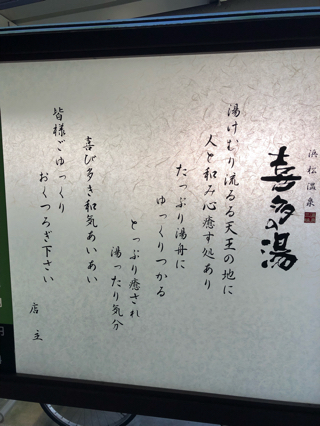 浜松温泉
喜多の湯
湯けむり流るる天王の地に
人と和み心癒す処あり
たっぷり湯舟に
ゆっくりつかる
とっぷり癒され
湯ったり気分
喜び多き和気あいあい
皆様ごゆっくり
おくつろぎ下さい
店主